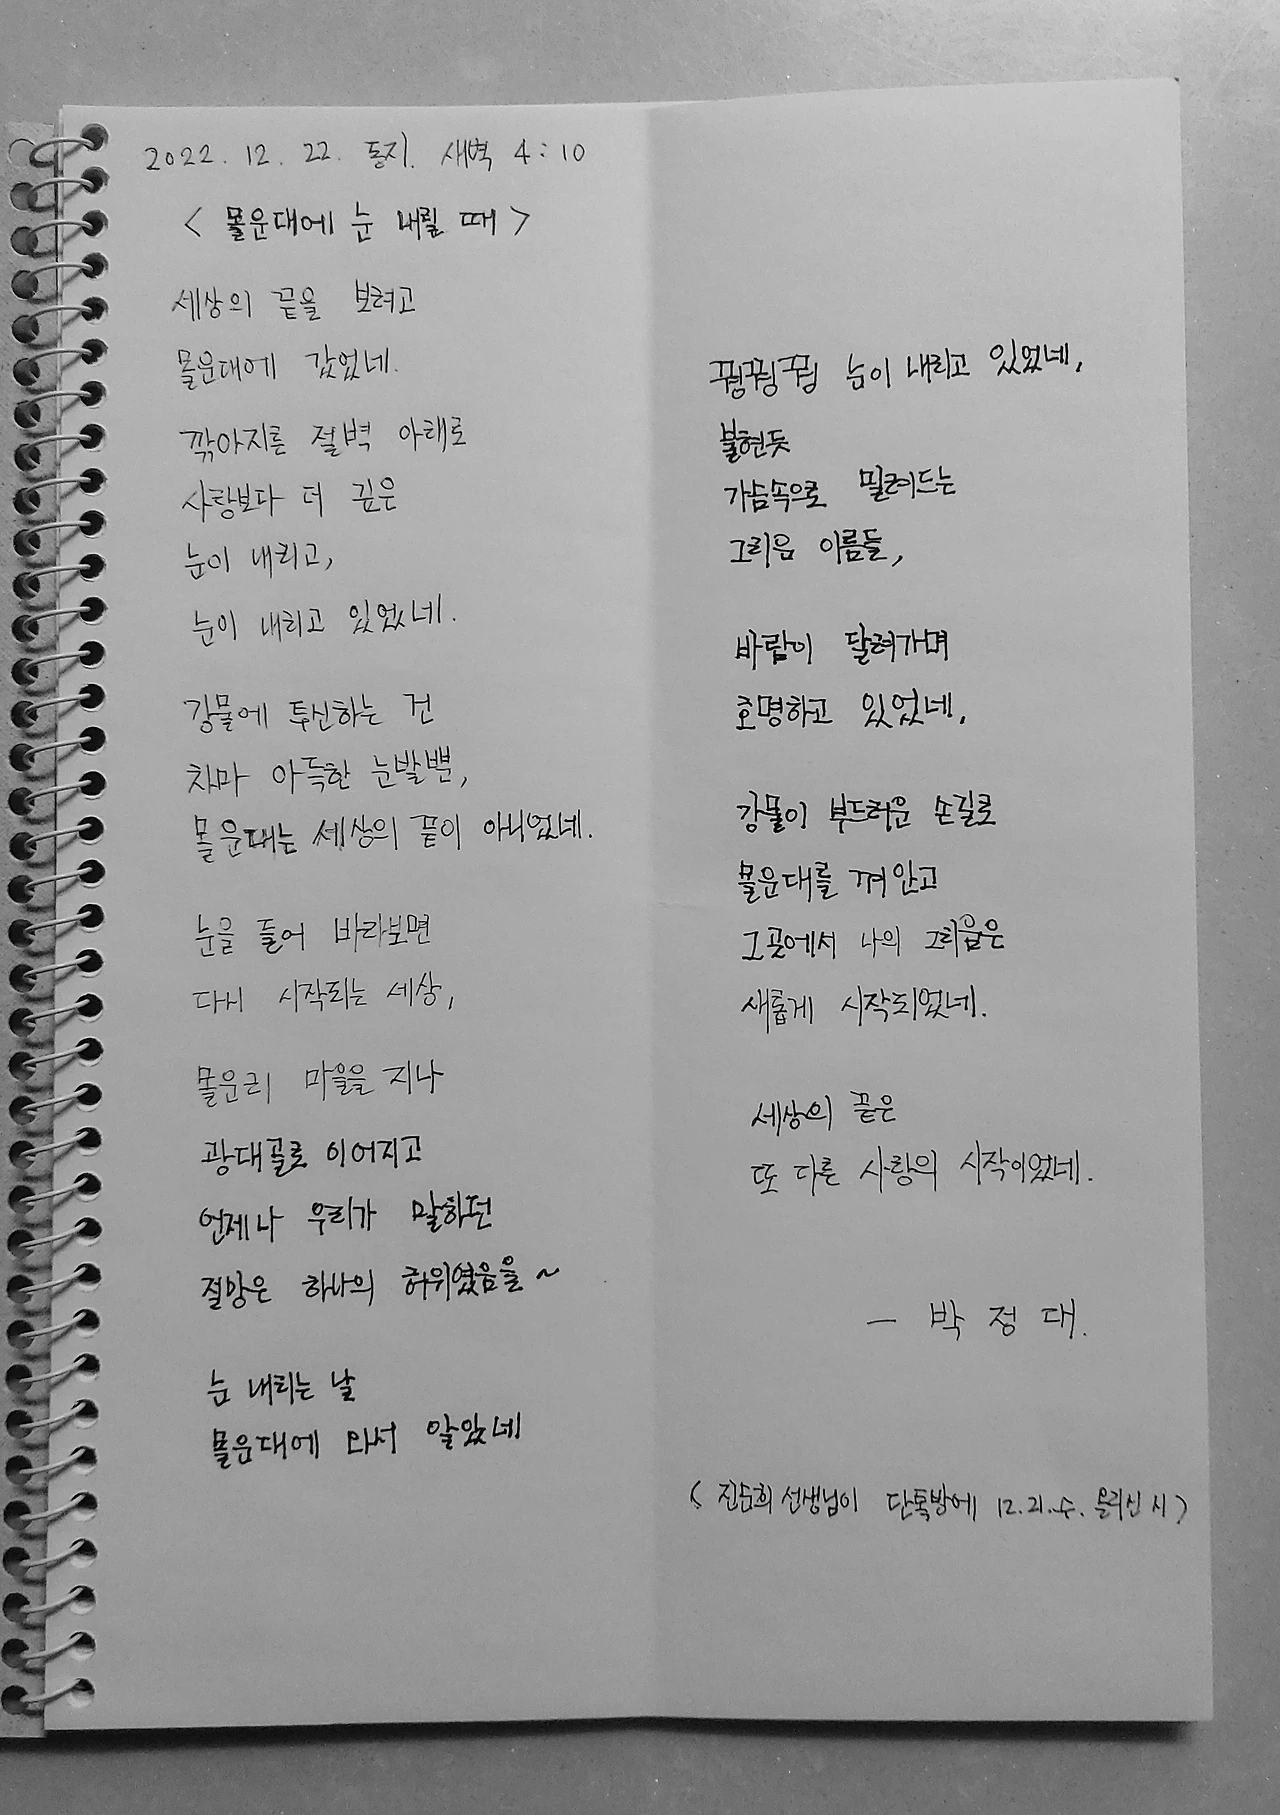 2022. 12. 22. 동지. 새벽 4:10
< 몰운대에 눈 내릴 때 >
세상의 끝을 보려고
몰운대에 갔었네.
깎아지른 절벽 아래로
사랑보다 더 깊은
눈이 내리고,
눈이 내리고 있었네.
강물에 투신하는 건
차마 아득한 눈발뿐,
몰운대는 세상의 끝이 아니었네.
눈을 들어 바라보면
다시 시작되는 세상,
몰운리 마을을 지나
광대골로 이어지고
언제나 우리가 말하던
절망은 하나의 허위였음을~
눈 내리는 날
몰운대에 와서 알았네
꿩꿩꿩 눈이 내리고 있었네,
불현듯
가슴속으로 밀려드는
그리운 이름들,
바람이 달려가며
호명하고 있었네,
강물이 부드러운 손길로
몰운대를 껴안고
그곳에서 나의 그리움은
새롭게 시작되었네.
세상의 끝은
또 다른 사랑의 시작이었네.
— 박정대.
< 진순희 선생님이 단톡방에 12.21.수. 올리신 시 >